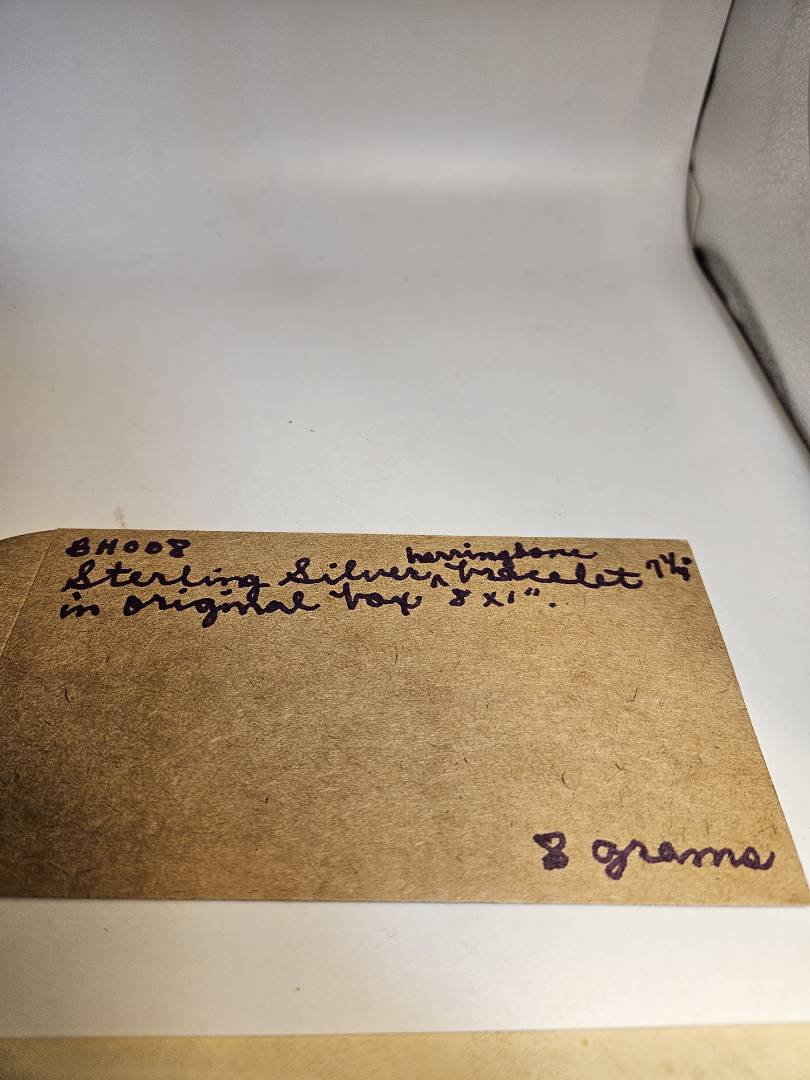 BH008
herringbone
Sterling Silver ^ bracelet 7 1/4"
in original box 8 x 1".
8 grams